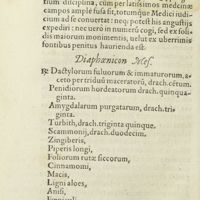 disciplina, cum per latissimos medicinæ
campos ample fusa sit, totumque Medici iudi-
cium ad se conuertat: neque potest his angustijs
expediri: nec vuero in numerū cogi, sed ex fo-
dis maiorum monimentis, vel ex vberrimis
fontibus penitus haurienda est.
Diaphœnicon Mes.
℞ Dactylorum fuluorum & immaturorum, a-
ceto per triduū maceratorū, drach. cētum.
Penidiorum hordeatorum drach. quinqua-
ginta.
Amygdalarum purgatarum, drach. tri-
ginta.
Turbith, drach. triginta quinque.
Scammonij, drach. duodecim.
Zingiberis,
Piperis longi,
Foliorum rutæ siccorum,
Cinnamomi,
Macis,
Ligni aloes,
Anisi,